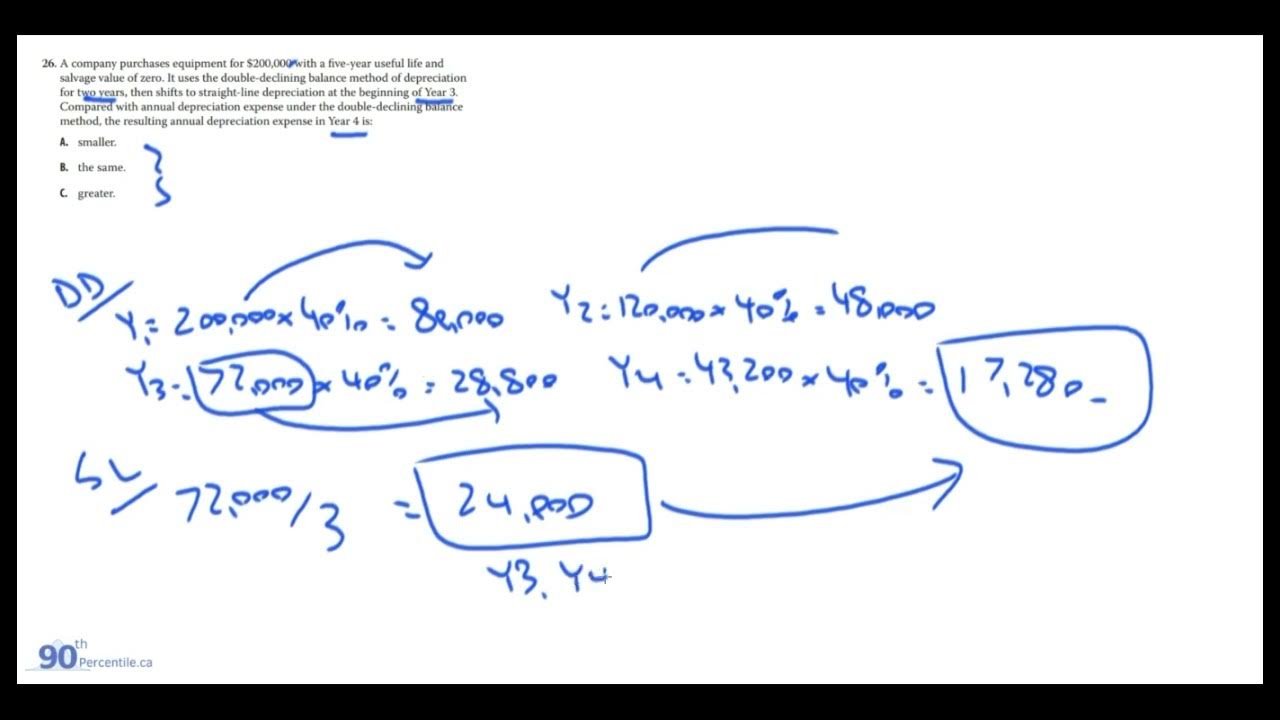 26. A company purchases equipment for $200,000 with a five-year useful life and
salvage value of zero. It uses the double-declining balance method of depreciation
for two years, then shifts to straight-line depreciation at the beginning of Year 3.
Compared with annual depreciation expense under the double-declining balance
method, the resulting annual depreciation expense in Year 4 is:
A. smaller.
B. the same.
C. greater.
DD/
Y1 = 200,000 x 40% = 80,000
Y2 = 120,000 x 40% = 48,000
Y3 = 72,000 x 40% = 28,800
Y4 = 43,200 x 40% = 17,280
SL/
72,000/3 = 24,000
Y3, Y4
90th
Percentile.ca